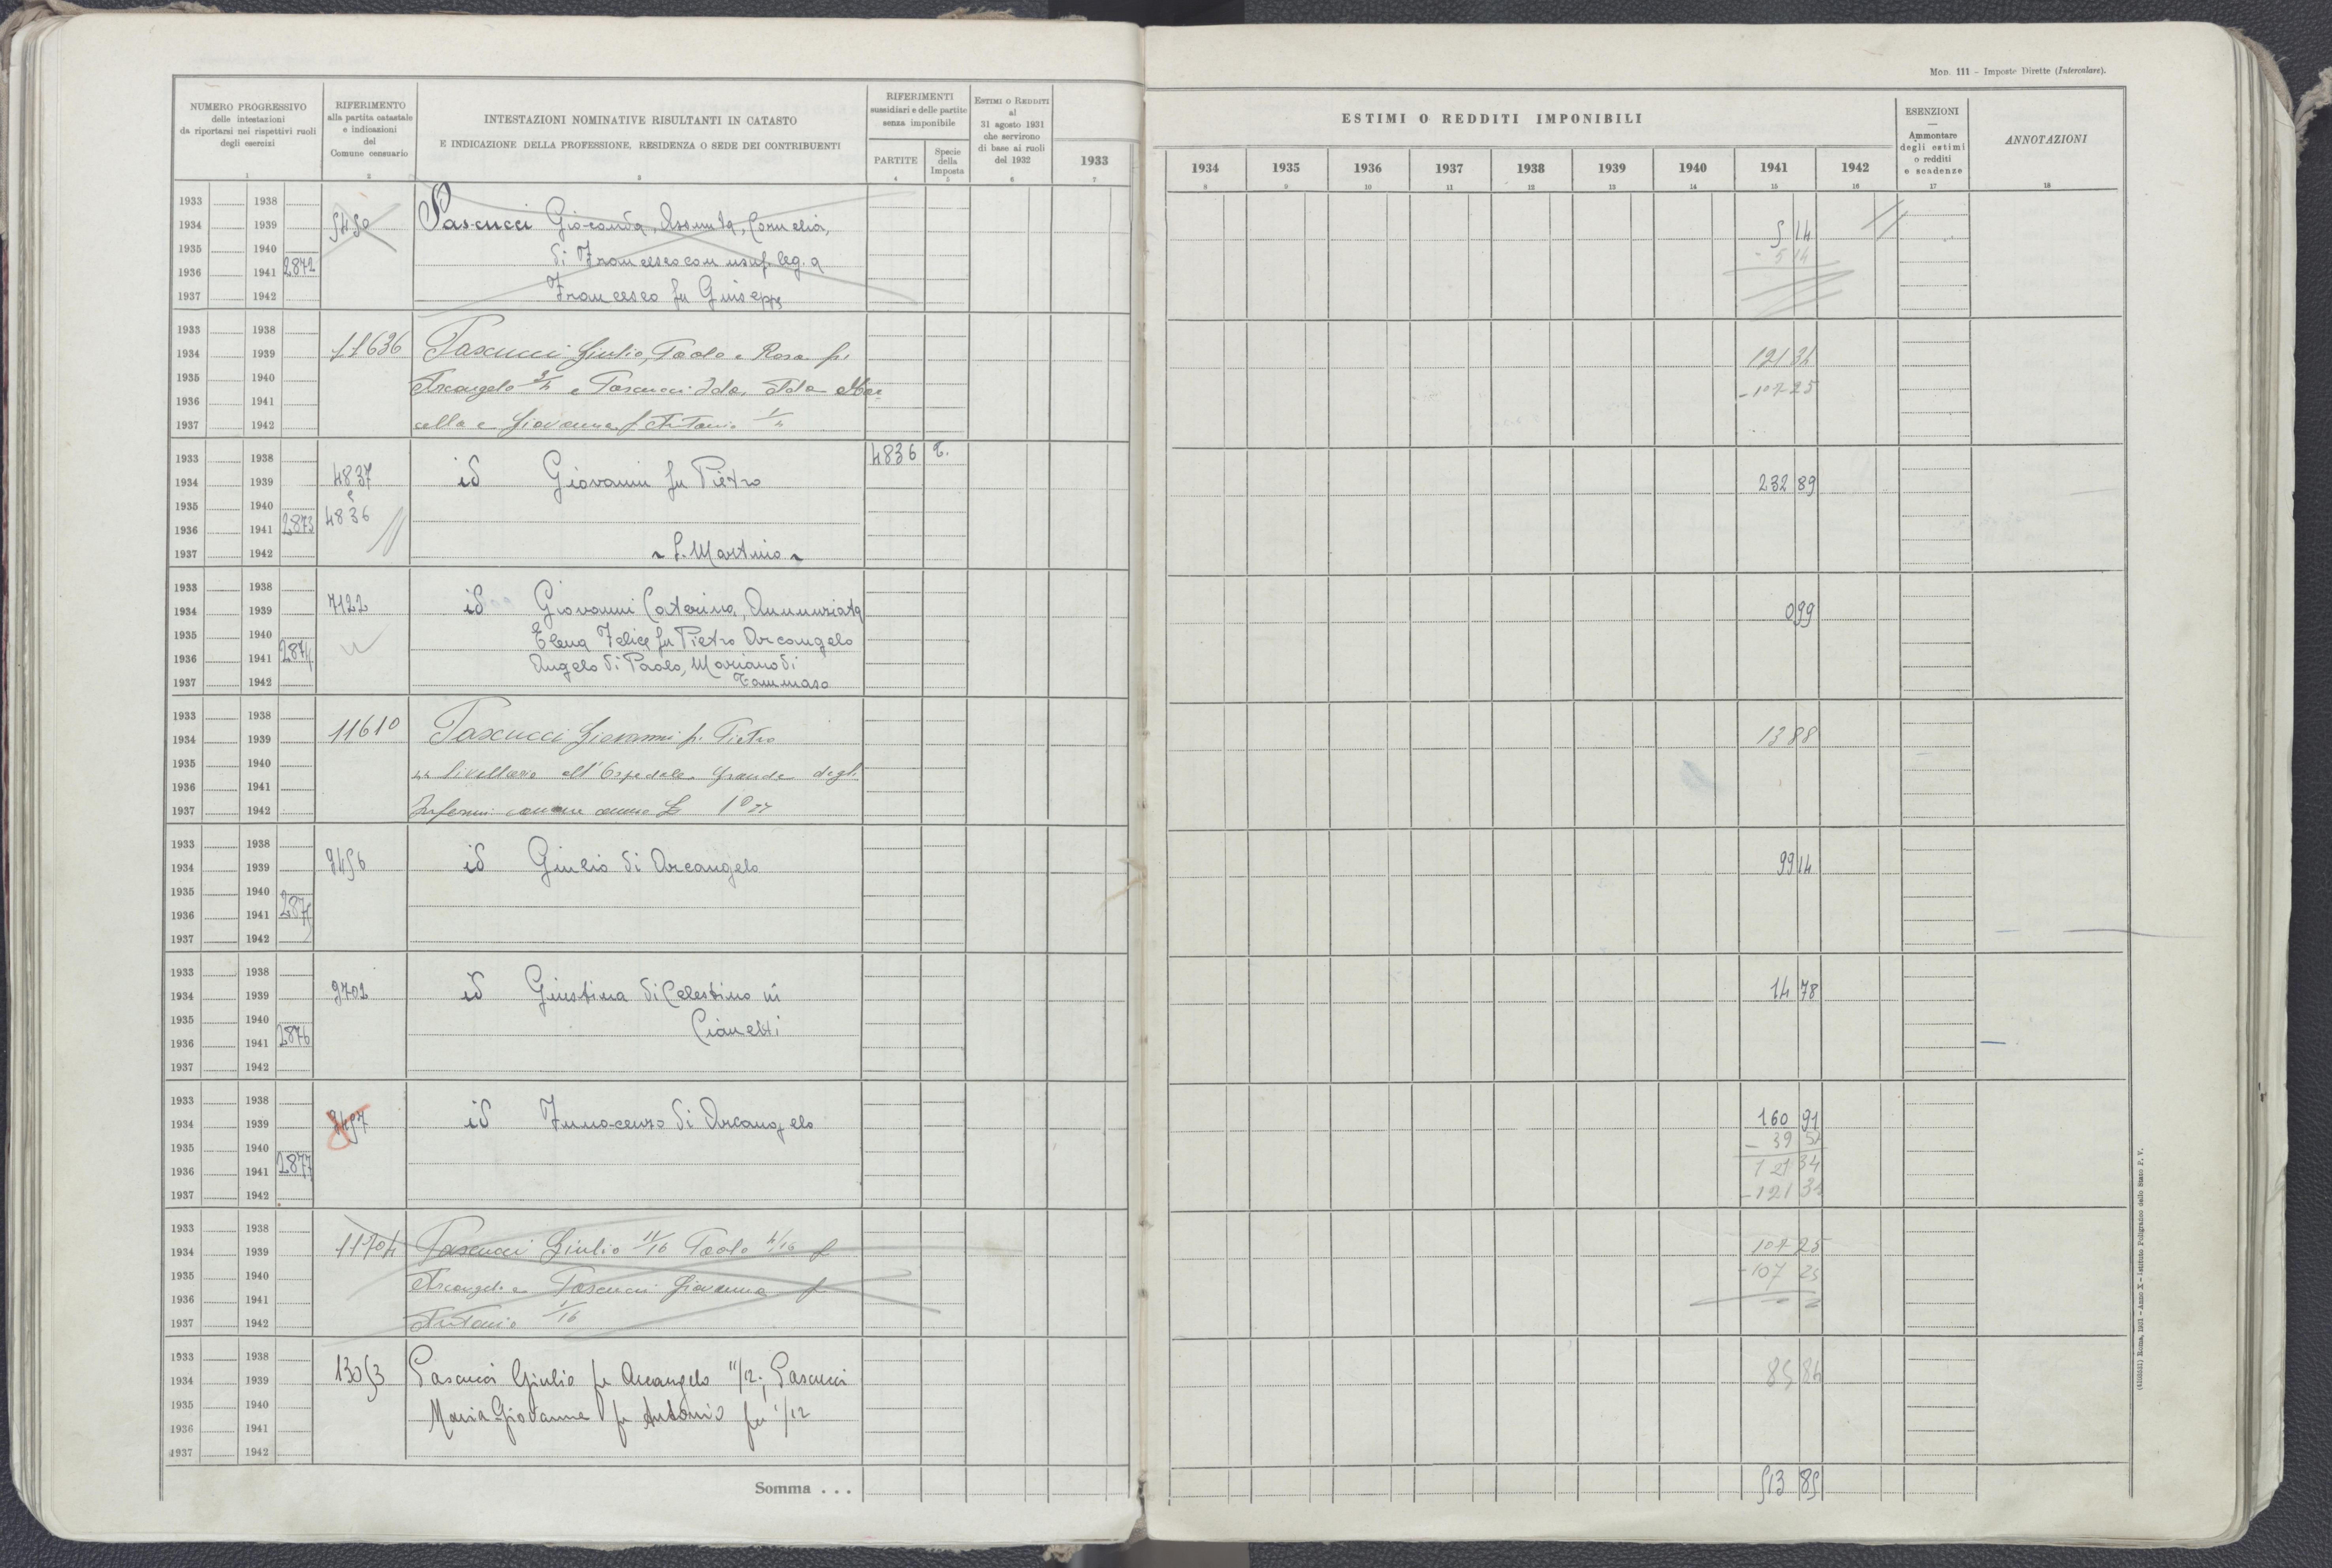 Mod. 111 - Imposte Dirette (Intercalare).
NUMERO PROGRESSIVO
delle intestazioni
da riportarsi nei rispettivi ruoli
degli esercizi
1
RIFERIMENTO
alla partita catastale
e indicazioni
del
Comune censuario
2
INTESTAZIONI NOMINATIVE RISULTANTI IN CATASTO
E INDICAZIONE DELLA PROFESSIONE, RESIDENZA O SEDE DEI CONTRIBUENTI
3
RIFERIMENTI
sussidiari e delle partite
senza imponibile
PARTITE
4
Specie
della
Imposta
5
Estimi o Redditi
al
31 agosto 1931
che servirono
di base ai ruoli
del 1932
6
1933
7
ESTIMI O REDDITI IMPONIBILI
1934 1935 1936 1937 1938 1939 1940 1941 1942
8 9 10 11 12 13 14 15 16
ESENZIONI
—
Ammontare
degli estimi
o redditi
e scadenze
17
ANNOTAZIONI
18
1933 1938
1934 1939 5450 Pascucci Gioconda, Assunta, Cornelia, 5 14
1935 1940 di Francesco con usuf. leg. a - 5 14
1936 1941 2872
1937 1942 Francesco fu Giuseppe
1933 1938
1934 1939 11636 Pascucci Giulio, Paolo e Rosa fu 121 34
1935 1940 Arcangelo 3/4 e Pascucci Ida, Alda Mar - 107 25
1936 1941
1937 1942 cella e Giovanna f Antonio 1/4
1933 1938 4836 t.
1934 1939 4837 id Giovanni fu Pietro 232 89
1935 1940 e
1936 1941 2873 4836
1937 1942 S. Martino
1933 1938
1934 1939 7122 id Giovanni Caterina, Annunziata 0 99
1935 1940 Elena Felice fu Pietro Arcangelo
1936 1941 2874 Angelo di Paolo, Mariano di
1937 1942 Tommaso
1933 1938
1934 1939 11610 Pascucci Giovanni fu Pietro 13 88
1935 1940 livellario all'Ospedale Grande degli
1936 1941
1937 1942 Infermi canone annuo L
1933 1938
1934 1939 9456 id Giulio di Arcangelo 99 14
1935 1940
1936 1941 2875
1937 1942
1933 1938
1934 1939 9702 id Giustina di Celestino in 14 78
1935 1940 Cianetti
1936 1941 2876
1937 1942
1933 1938
1934 1939 9457 id Innocenzo di Arcangelo 160 91
1935 1940 - 39 57
1936 1941 2877 121 34
1937 1942 - 121 34
1933 1938
1934 1939 11704 Pascucci Giulio 11/16 Paolo 4/16 f 107 25
1935 1940 Arcangelo e Pascucci Giovanna f - 107 25
1936 1941
1937 1942 Antonio 1/16
1933 1938
1934 1939 13053 Pascucci Giulio fu Arcangelo 11/12; Pascucci 85 86
1935 1940 Maria Giovanna fu Antonio per 1/12
1936 1941
1937 1942
Somma . . . 513 85
Roma, 1931 - Anno X - Istituto Poligrafico dello Stato P. V.